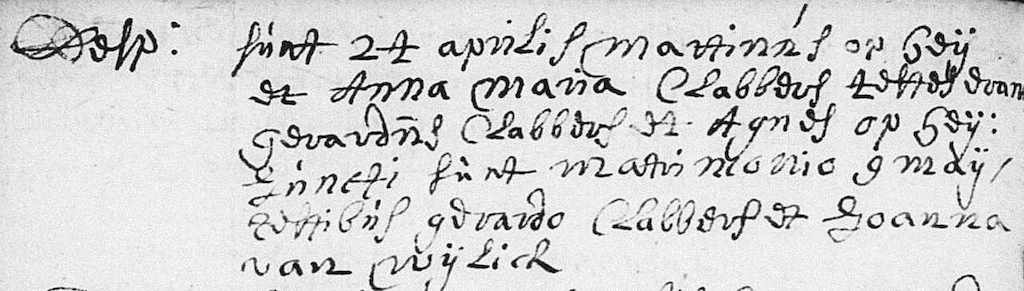 Desp: sunt 24 aprilis Martinus op heÿ
et Anna Maria Clabbers testes erant
gerardus Clabbers et Agnes op heÿ:
Juncti sunt matrimonio 9 maÿ,
testibus gerardo Clabbers et Joanna
van wÿlick